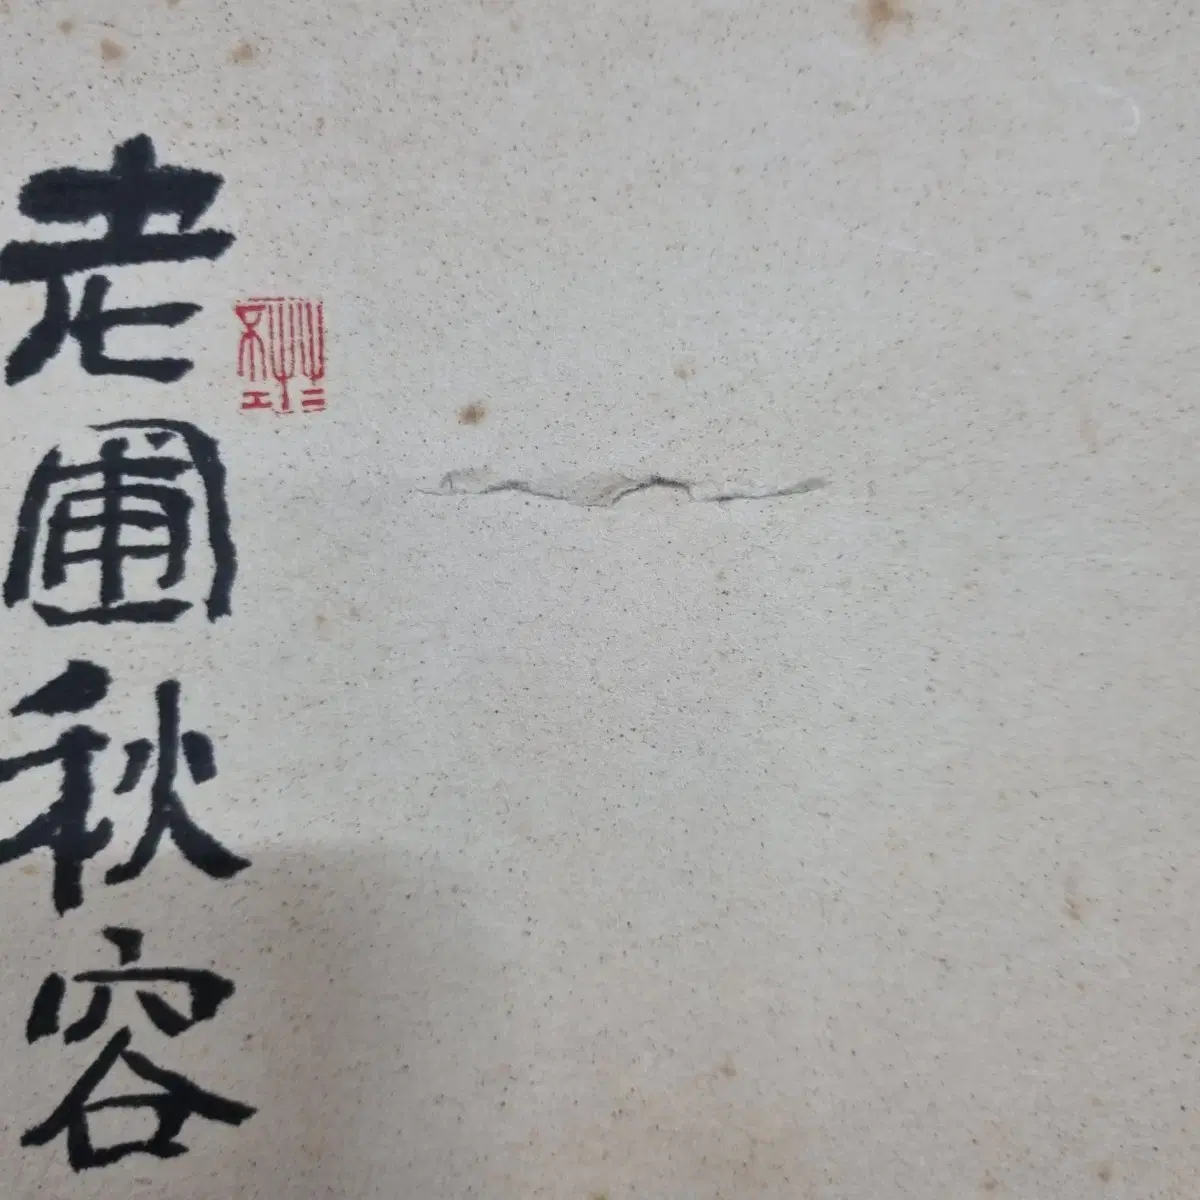 老圃秋容